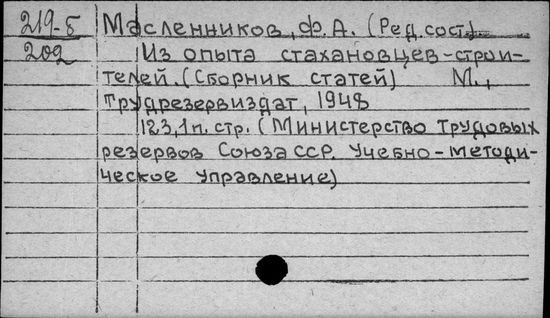 219-5
202
Масленников, Ф.А. (Ред. сост.)
Из опыта стахановцев-строи-
телей. (Сборник статей) М.,
Трудрезервиздат, 1948
123,1 п. стр. (Министерство Трудовых
резервов Союза ССР. Учебно-методи-
ческое управление)